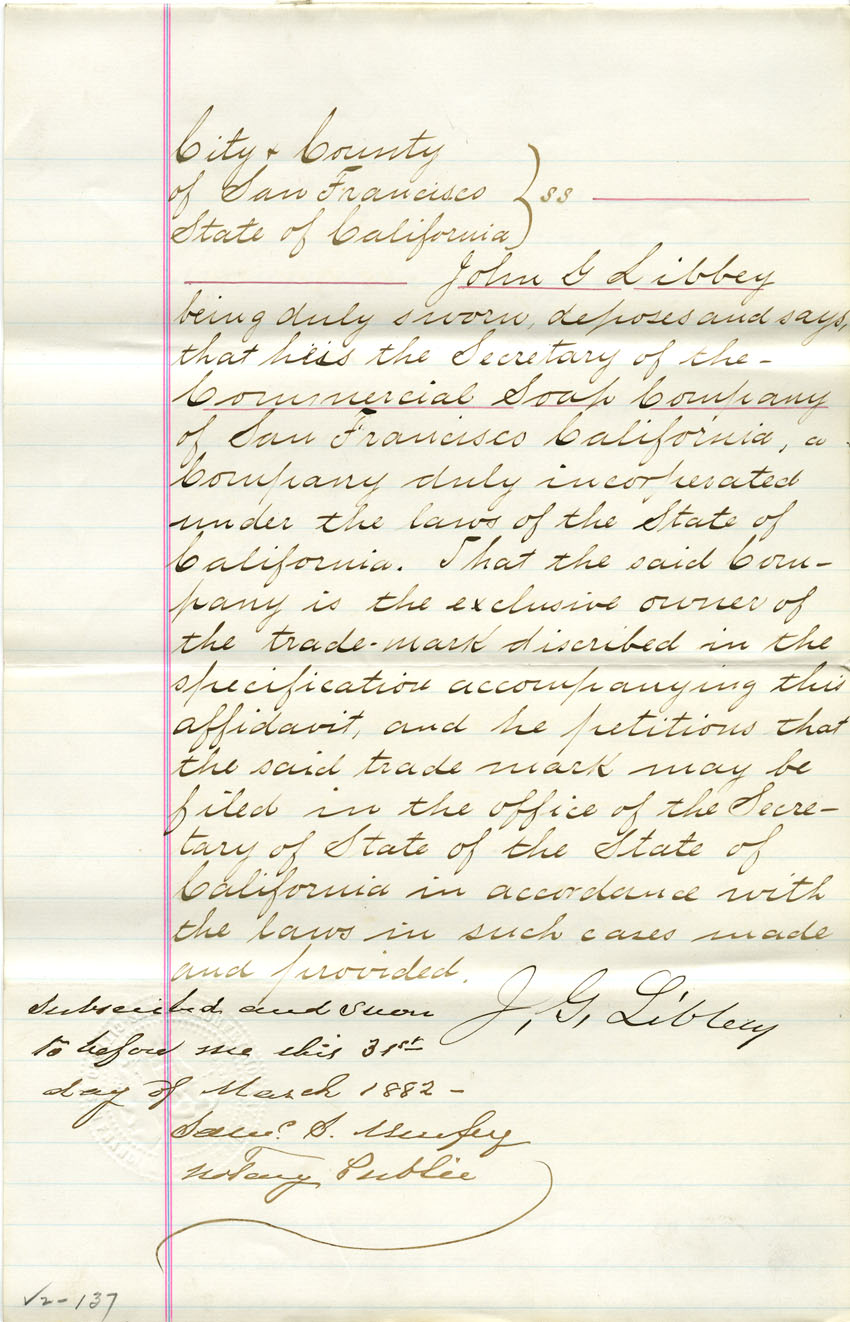 City & County
of San Francisco } ss
State of California
John G Libbey
being duly sworn, deposes and says,
that he is the Secretary of the-
Commercial Soap Company
of San Francisco California, a
Company duly incorporated
under the laws of the State of
California. That the said Com-
pany is the exclusive owner of
the trade-mark discribed in the
specification accompanying this
affidavit, and he petitions that
the said trade mark may be
filed in the office of the Secre-
tary of State of the State of
California in accordance with
the laws in such cases made
and provided.
J. G. Libbey
Subscribed and sworn
to before me this 31st
day of March 1882-
Saml S. Murfey
Notary Public
√2-137